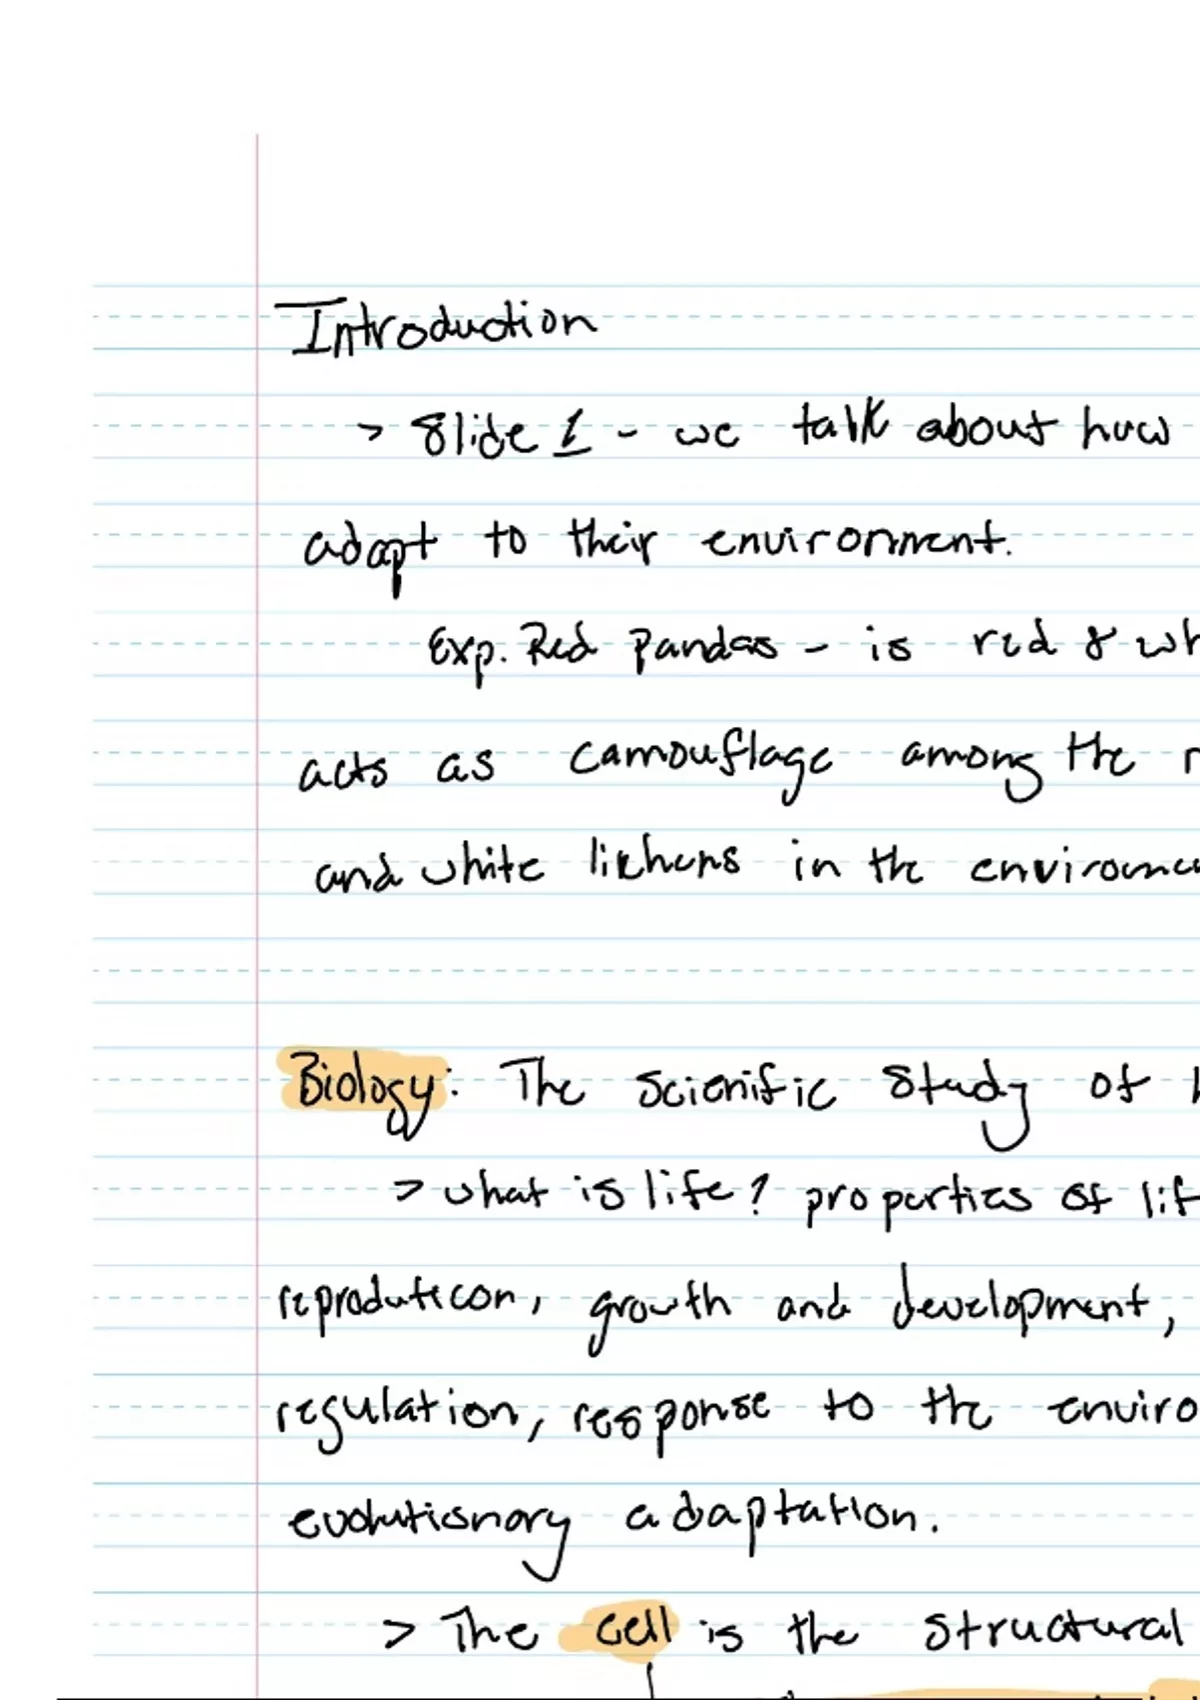 Introduction
> Slide 1 - we talk about how
adapt to their environment.
Exp. Red pandas - is red & wh
acts as camouflage among the
and white lichens in the
Biology: The scienific study of
> what is life? properties of lif
reproduticon, growth and development,
regulation, response to the enviro
evolutionary adaptation.
> The cell is the structural